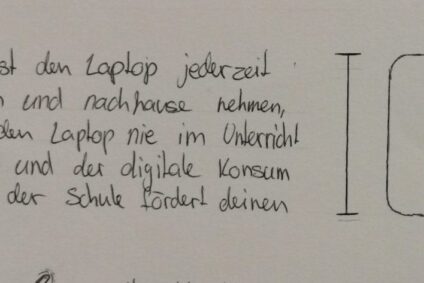 st den Laptop jederzeit
und nachhause nehmen,
den Laptop nie im Unterricht
und der digitale Konsum
der Schule fördert deinen